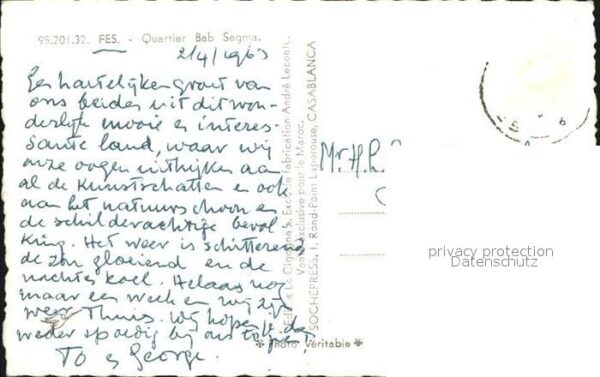 95.201.32. FES. - Quartier Bab Segma.
21/4/1963
Een hartelijken groet van
ons beiden uit dit won-
derlijk mooie en interes-
sante land, waar wij
onze oogen uitkijken aan
al de Kunstschatten en ook
aan het natuurschoon en
de schilderachtige bevol
king. Het weer is schitterend
de zon gloeiend en de
nachten koel. Helaas nog
maar een week en wij zijn
weer thuis. Wij hopen je
weder spoedig bij ons te
To en George.
Mr. H.
Edité "La Cigogne". Exclusive fabrication André Leconte
Vente exclusive pour le Maroc.
SOCHEPRESS, 1, Rond-Point Lapérouse, CASABLANCA
Photo Véritable
privacy protection
Datenschutz